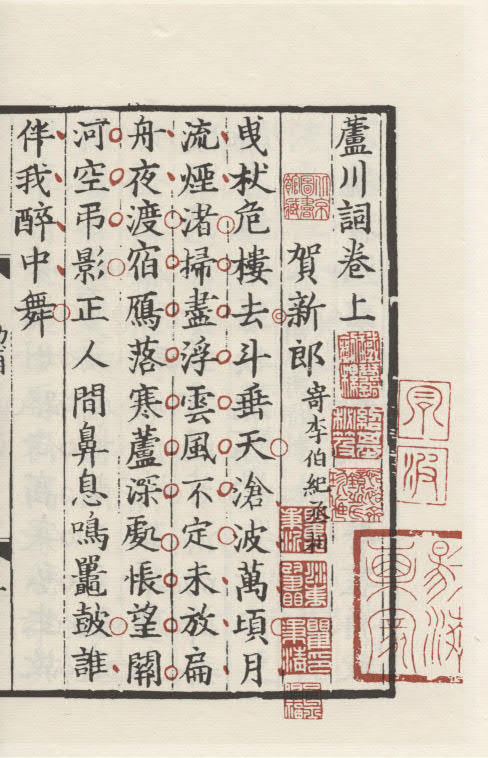 蘆川詞卷上
賀新郎 寄李伯紀丞相
曵杖危樓去斗垂天滄波萬頃月
流煙渚掃盡浮雲風不定未放扁
舟夜渡宿鴈落寒蘆深處悵望關
河空弔影正人間鼻息鳴鼉皷誰
伴我醉中舞